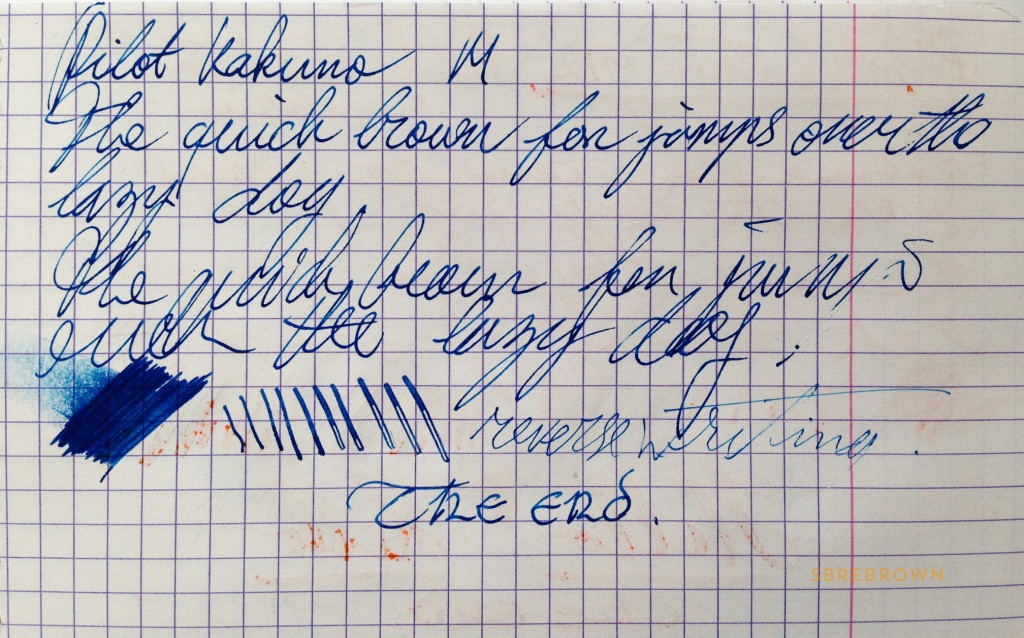 Pilot Kakuno M
The quick brown fox jumps over the
lazy dog
The quick brown fox jumps
over the lazy dog.
reverse writing.
THE END.
SBREBROWN